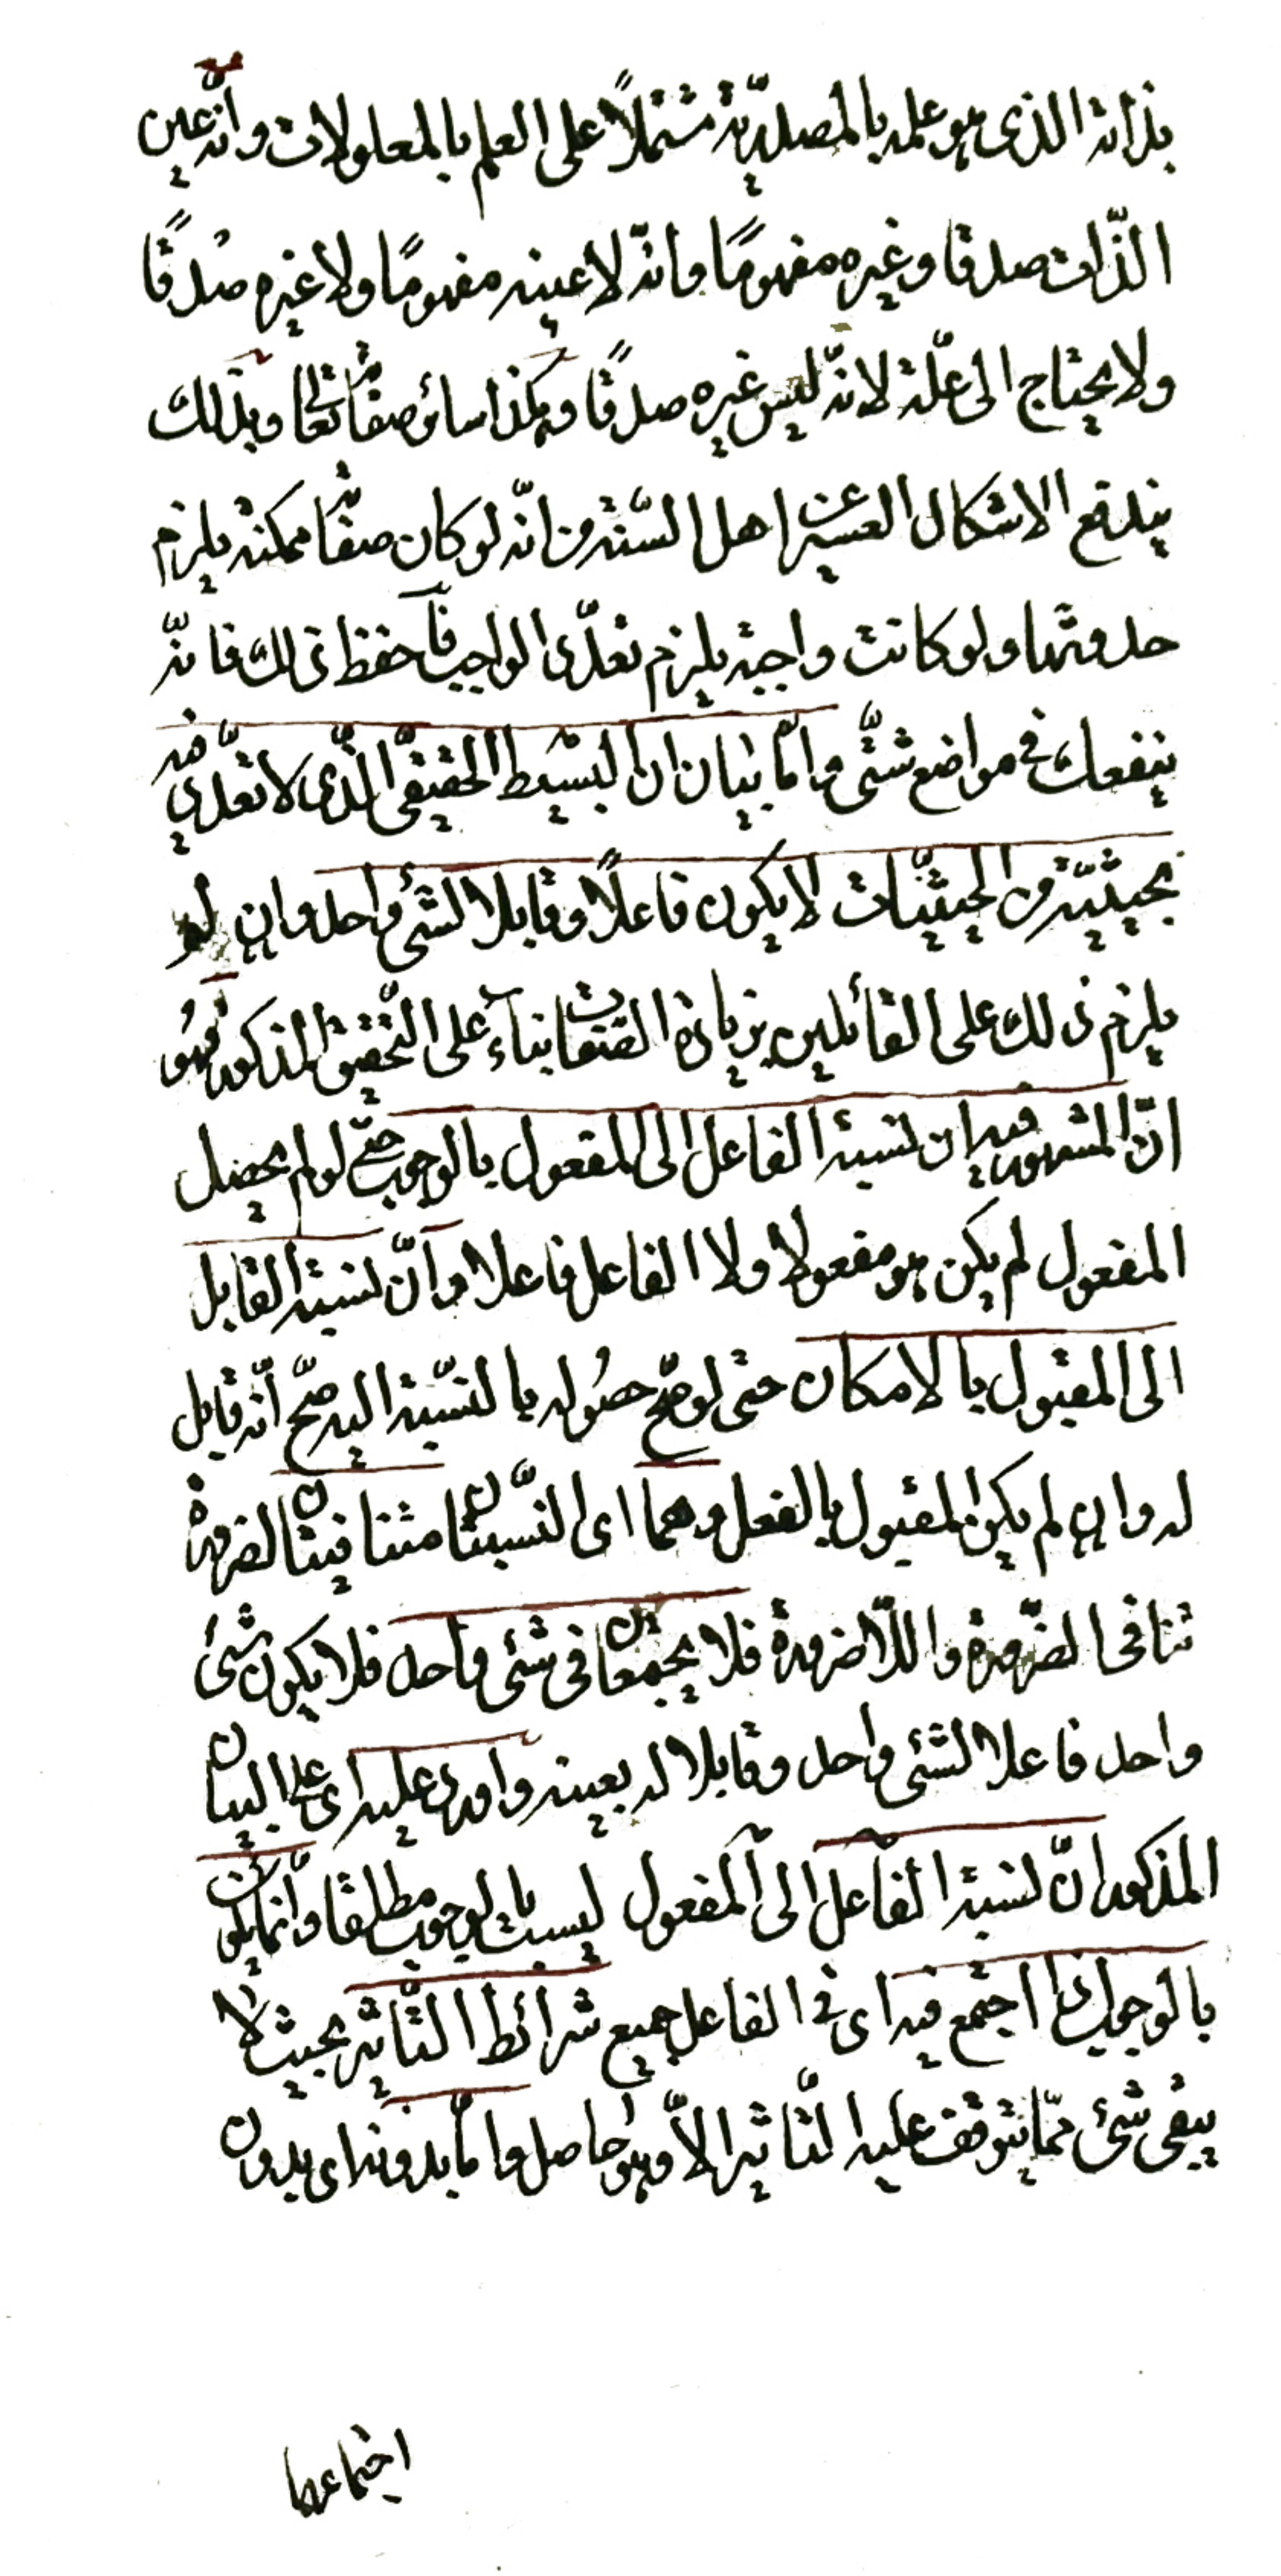 بذاته الذى هو علمه بالمصدريّة مشتملاً على العلم بالمعلولات وانّه عين
الذّات صدقا وغيره مفهومًا وانّه لا عينه مفهومًا ولا غيره صدقًا
ولا يحتاج الى علّة لانّه ليس غيره صدقًا وهكذا سائر صفاته تعالى وبذلك
يندفع الاشكال العسير عن اهل السّنة من انّه لو كان صفاته ممكنة يلزم
حدوثها ولو كانت واجبة يلزم تعدّد الواجب فاحفظ ذلك فانّه
ينفعك فى مواضع شتّى وامّا بيان ان البسيط الحقيقىّ الّذى لا تعدّد فيه
بحيثيّة من الحيثيّات لا يكون فاعلاً وقابلا لشئ واحد وان لم
يلزم ذلك على القائلين بزيادة الصفات بناءً على التّحقيق المذكور فهُو
انّ المشهور فيه ان نسبة الفاعل الى المفعول بالوجوب حتّى لو لم يحصل
المفعول لم يكن هو مفعولا ولا الفاعل فاعلا وانّ نسبة القابل
الى المقبول بالامكان حتى لو صّح حصُوله بالنّسبة اليه صّح انّه قابل
له وان لم يكن المقبول بالفعل وهما اى النّسبتان متنافيتان لضرورة
تنافى الضّرورة واللّاضرورة فلا يجتمعان فى شئ واحد فلا يكون شئ
واحد فاعلا لشئ واحد وقابلا له بعينه واورد عليه اى على البيان
المذكور انّ نسبة الفاعل الى المفعول ليست بالوجوب مطلقا وانّما يكون
بالوجوب اذا اجتمع فيه اى فى الفاعل جميع شرائط التّأثير بحيث لا
يبقى شئ ممّا يتوقف عليه التّاثير الاّ وهو حاصل وامّا بدونه اى بدون
اجتماعها